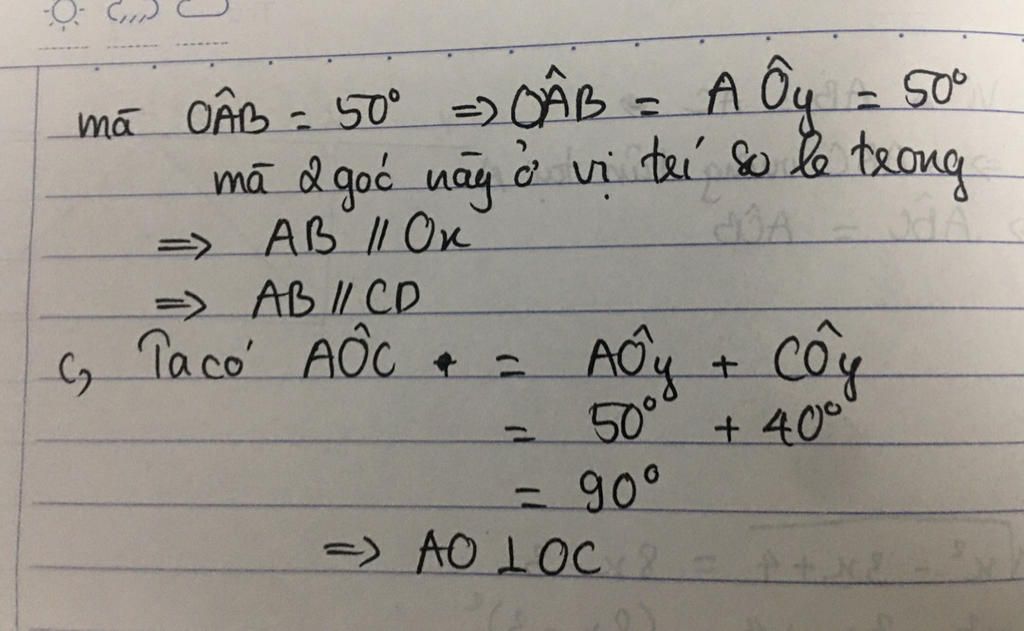 mà OÂB = 50° => OÂB = AÔy = 50°
mà 2 góc này ở vị trí so le trong
=> AB // Ox
=> AB // CD
c, Ta có AÔC = AÔy + CÔy
= 50° + 40°
= 90°
=> AO ⊥ OC